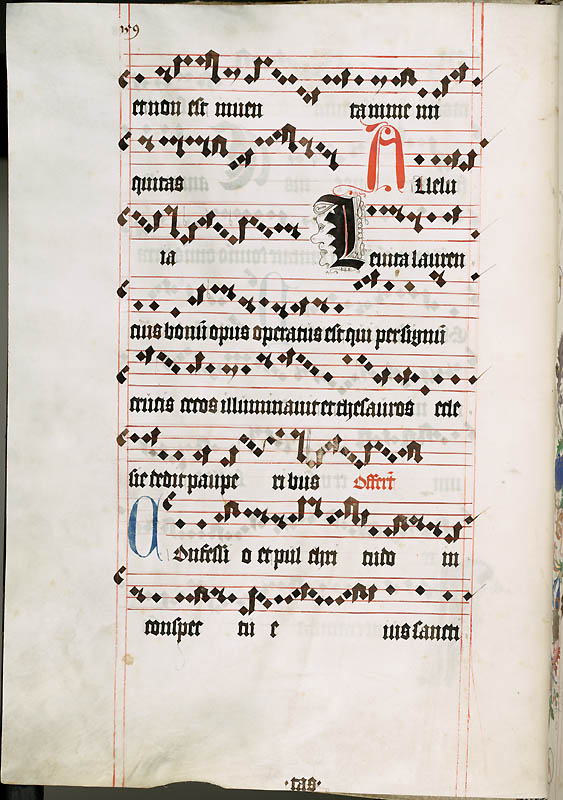 159
et non est inuen ta in me ini
quitas Allelu
ia Leuita lauren
cius bonū opus operatus est qui per signū
crucis cecos illuminauit et thesauros eccle
sie dedit paupe ri bus Offert
Confessi o et pul chri tudo in
conspec tu e ius sancti
·tas·